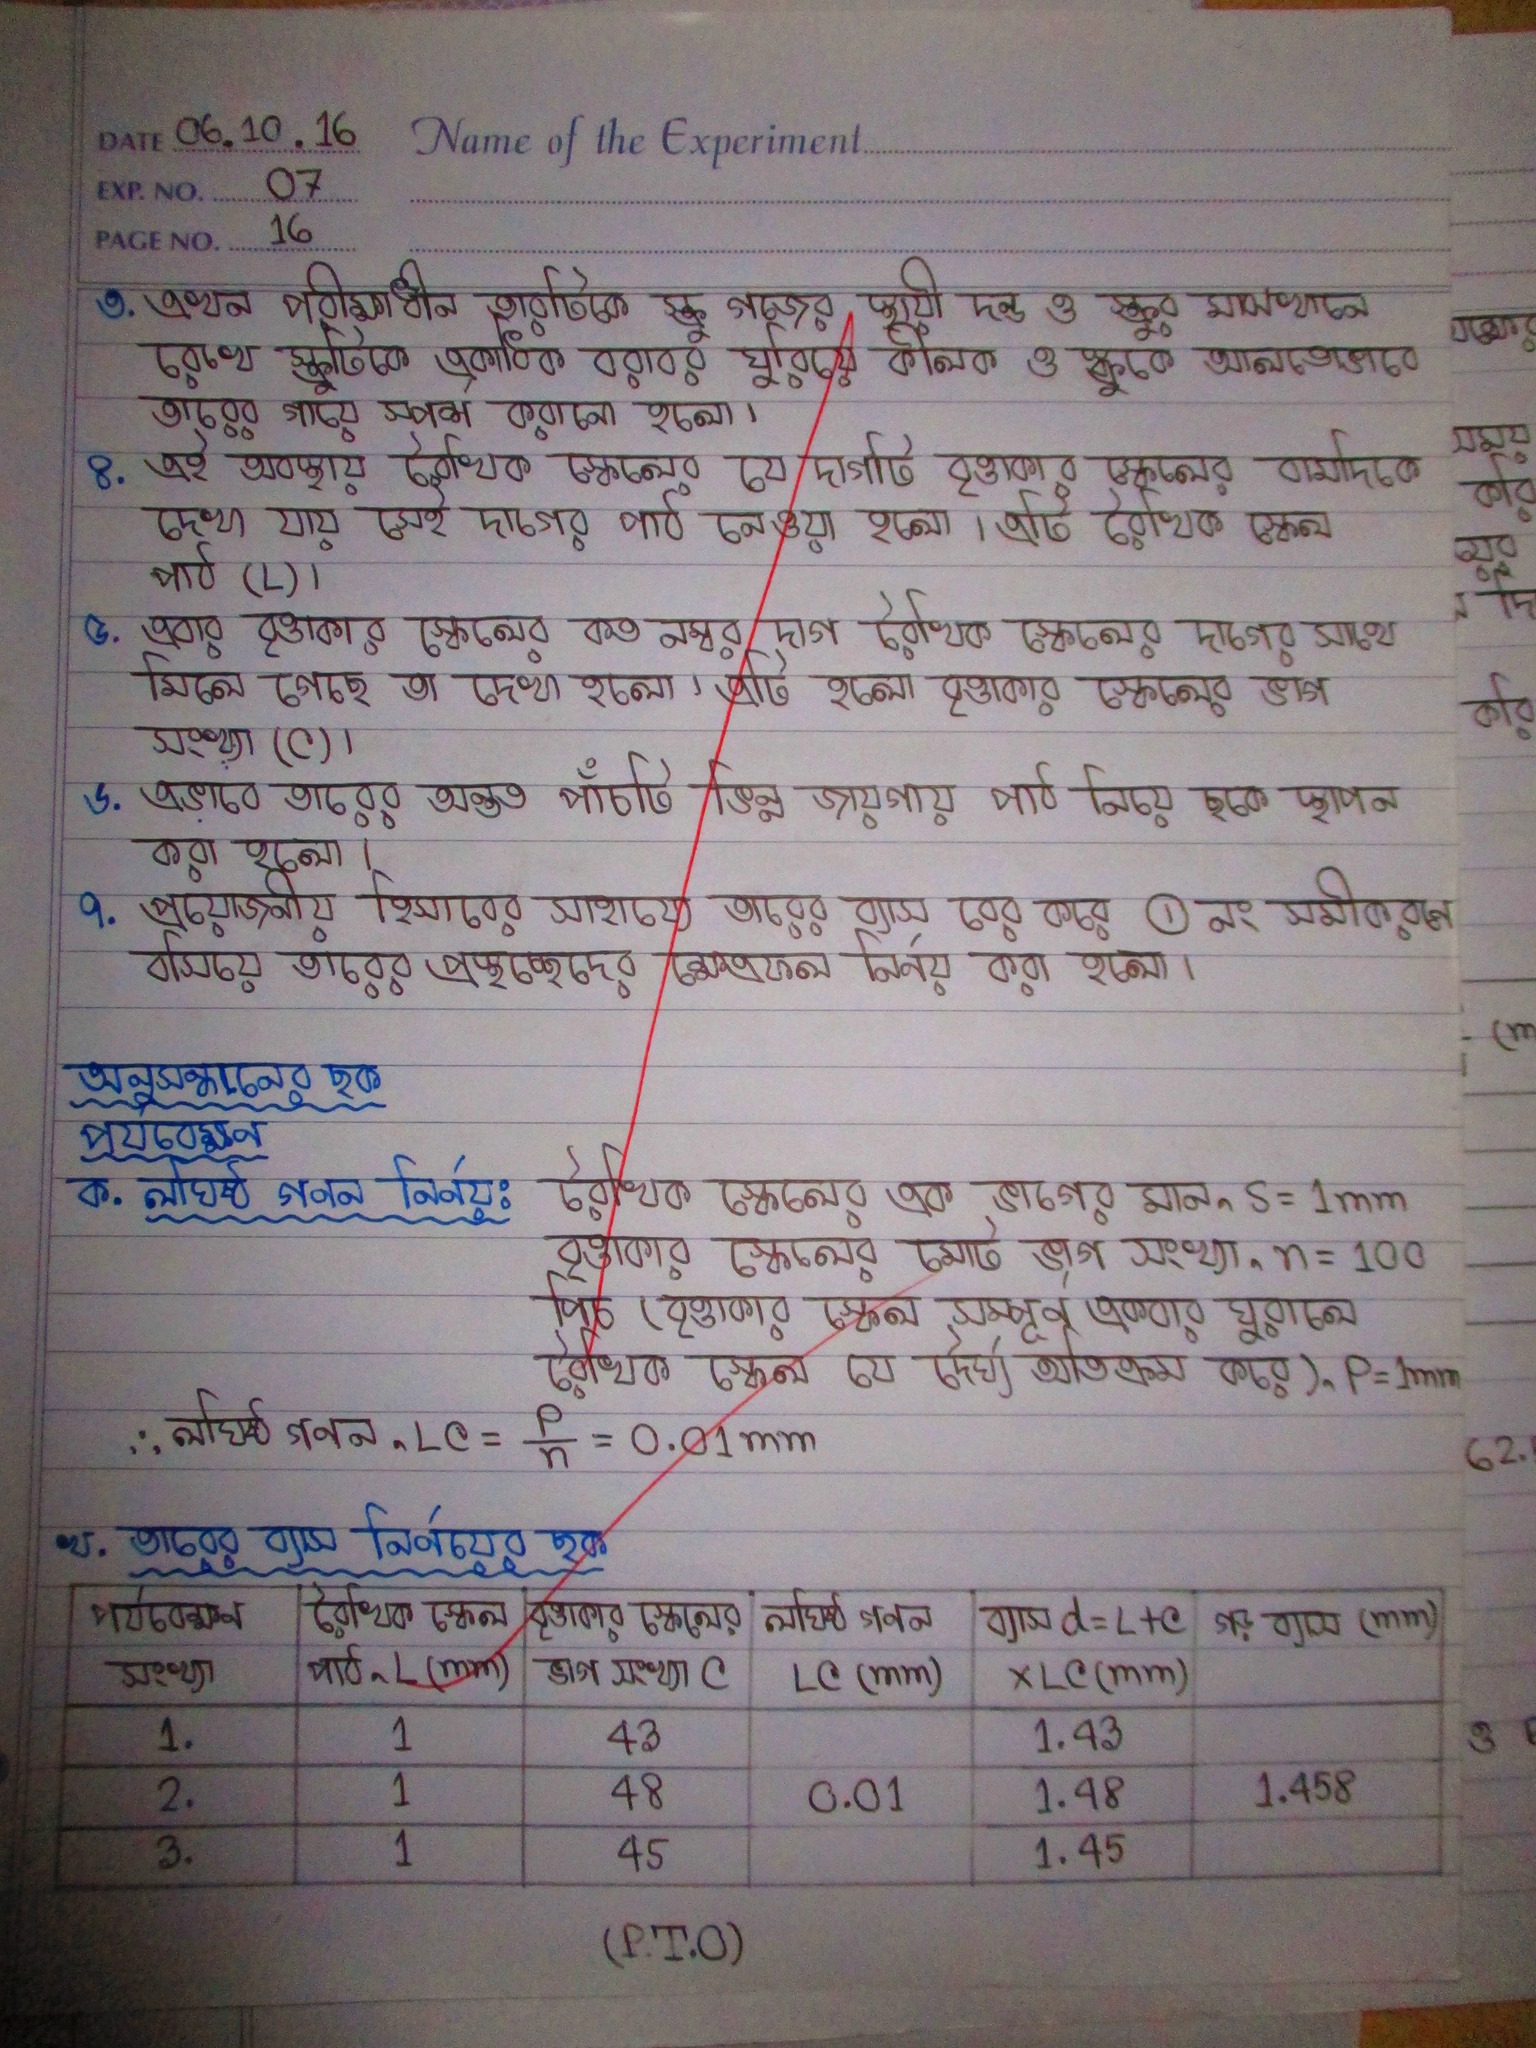 DATE 06.10.16 Name of the Experiment
EXP. NO. 07
PAGE NO. 16
৩. এখন পরীক্ষাধীন তারটিকে স্ক্রু গজের স্থায়ী দন্ড ও স্ক্রুর মাঝখানে
রেখে স্ক্রুটিকে একদিক বরাবর ঘুরিয়ে কীলক ও স্ক্রুকে আলতোভাবে
তারের গায়ে স্পর্শ করানো হলো।
৪. এই অবস্থায় রৈখিক স্কেলের যে দাগটি বৃত্তাকার স্কেলের বামদিকে
দেখা যায় সেই দাগের পাঠ নেওয়া হলো। এটি রৈখিক স্কেল
পাঠ (L)।
৫. এবার বৃত্তাকার স্কেলের কত নম্বর দাগ রৈখিক স্কেলের দাগের সাথে
মিলে গেছে তা দেখা হলো। এটি হলো বৃত্তাকার স্কেলের ভাগ
সংখ্যা (C)।
৬. এভাবে তারের অন্তত পাঁচটি ভিন্ন জায়গায় পাঠ নিয়ে ছকে স্থাপন
করা হলো।
৭. প্রয়োজনীয় হিসাবের সাহায্যে তারের ব্যাস বের করে ① নং সমীকরণে
বসিয়ে তারের প্রস্থচ্ছেদের ক্ষেত্রফল নির্ণয় করা হলো।
অনুসন্ধানের ছক
পর্যবেক্ষণ
ক. লঘিষ্ঠ গণন নির্ণয়ঃ রৈখিক স্কেলের এক ভাগের মান, S = 1mm
বৃত্তাকার স্কেলের মোট ভাগ সংখ্যা, n = 100
পিচ (বৃত্তাকার স্কেল সম্পূর্ণ একবার ঘুরালে
রৈখিক স্কেল যে দৈর্ঘ্য অতিক্রম করে), P = 1mm
∴ লঘিষ্ঠ গণন, LC = P/n = 0.01mm
খ. তারের ব্যাস নির্ণয়ের ছক
পর্যবেক্ষণ রৈখিক স্কেল বৃত্তাকার স্কেলের লঘিষ্ঠ গণন ব্যাস d = L+C গড় ব্যাস (mm)
সংখ্যা পাঠ, L (mm) ভাগ সংখ্যা C LC (mm) ×LC (mm)
1. 1 43 1.43
2. 1 48 0.01 1.48 1.458
3. 1 45 1.45
(P.T.O)